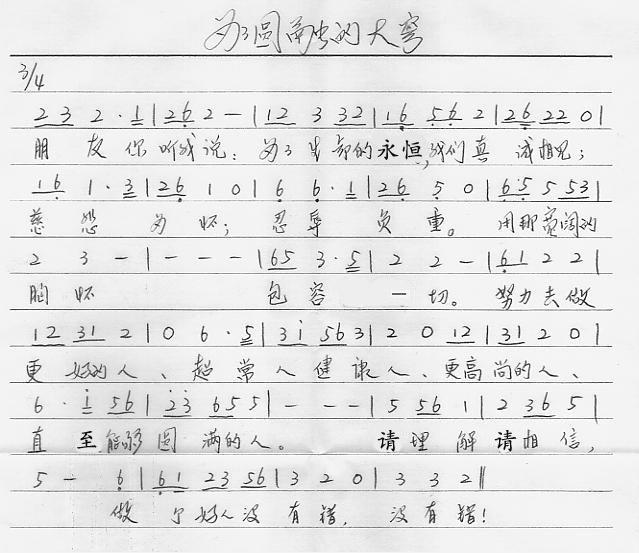 为了圆融的大寫
3/4
2 3 2 · 1 | 2 6 2 — | 1 2 3 3 2 | 1 6 5 6 2 | 2 6 2 2 0 |
朋 友 你 听我 说: 为了 生命的 永恒,我们 真 诚相见;
1 6 1 · 3 | 2 6 1 0 | 6 6 · 1 | 2 6 5 0 | 6 5 5 5 3 |
慈 悲 为 怀; 忍 辱 负 重。 用那 宽阔的
2 3 — | — — — | 6 5 3 · 5 | 2 2 — | 6 1 2 2 |
胸 怀 包 容 一 切。 努力 去 做
1 2 3 1 2 | 0 6 · 5 | 3 i 5 6 3 | 2 0 1 2 | 3 1 2 0 |
更 好的 人、 超 常 人 健 康 人、 更高 尚的 人、
6 · i 5 6 | 2 3 6 5 5 | — — — | 5 5 6 1 | 2 3 6 5 |
直 至 能够 圆 满的 人。 请 理 解 请 相 信,
5 — 6 | 6 1 2 3 5 6 | 3 2 0 | 3 3 2 ‖
做 个 好人 没 有 错, 没 有 错!